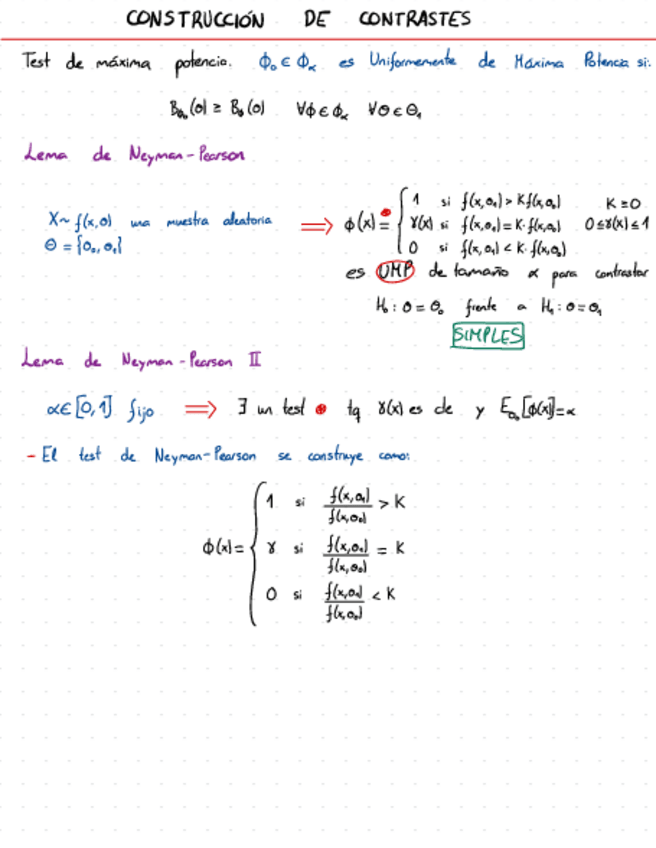 CONSTRUCCIÓN DE CONTRASTES
Test de máxima potencia. ϕ₀ ∈ Φ_α es Uniformemente de Máxima Potencia si:
B_ϕ₀(θ) ≥ B_ϕ(θ) ∀ϕ ∈ ϕ_α ∀θ ∈ Θ₁
Lema de Neyman-Pearson
X ~ f(x,θ) una muestra aleatoria
Θ = {θ₀, θ₁}
⇒ ϕ(x) = { 1 si f(x,θ₁) > K f(x,θ₀) K ≥ 0
γ(x) si f(x,θ₁) = K· f(x,θ₀) 0 ≤ γ(x) ≤ 1
0 si f(x,θ₁) < K· f(x,θ₀)
es UMP de tamaño α para contrastar
H₀ : θ = θ₀ frente a H₁ : θ = θ₁
SIMPLES
Lema de Neyman-Pearson II
α ∈ [0,1] fijo ⇒ ∃ un test • tq γ(x) es de y E_θ₀[ϕ(x)] = α
- El test de Neyman-Pearson se construye como:
ϕ(x) = { 1 si f(x,θ₁)/f(x,θ₀) > K
γ si f(x,θ₁)/f(x,θ₀) = K
0 si f(x,θ₁)/f(x,θ₀) < K